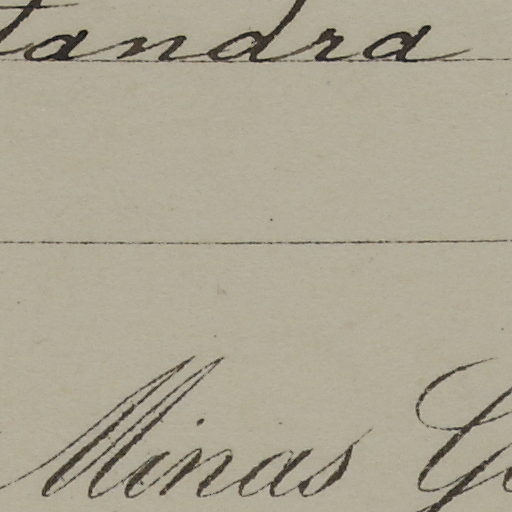 tandra
Minas Ge